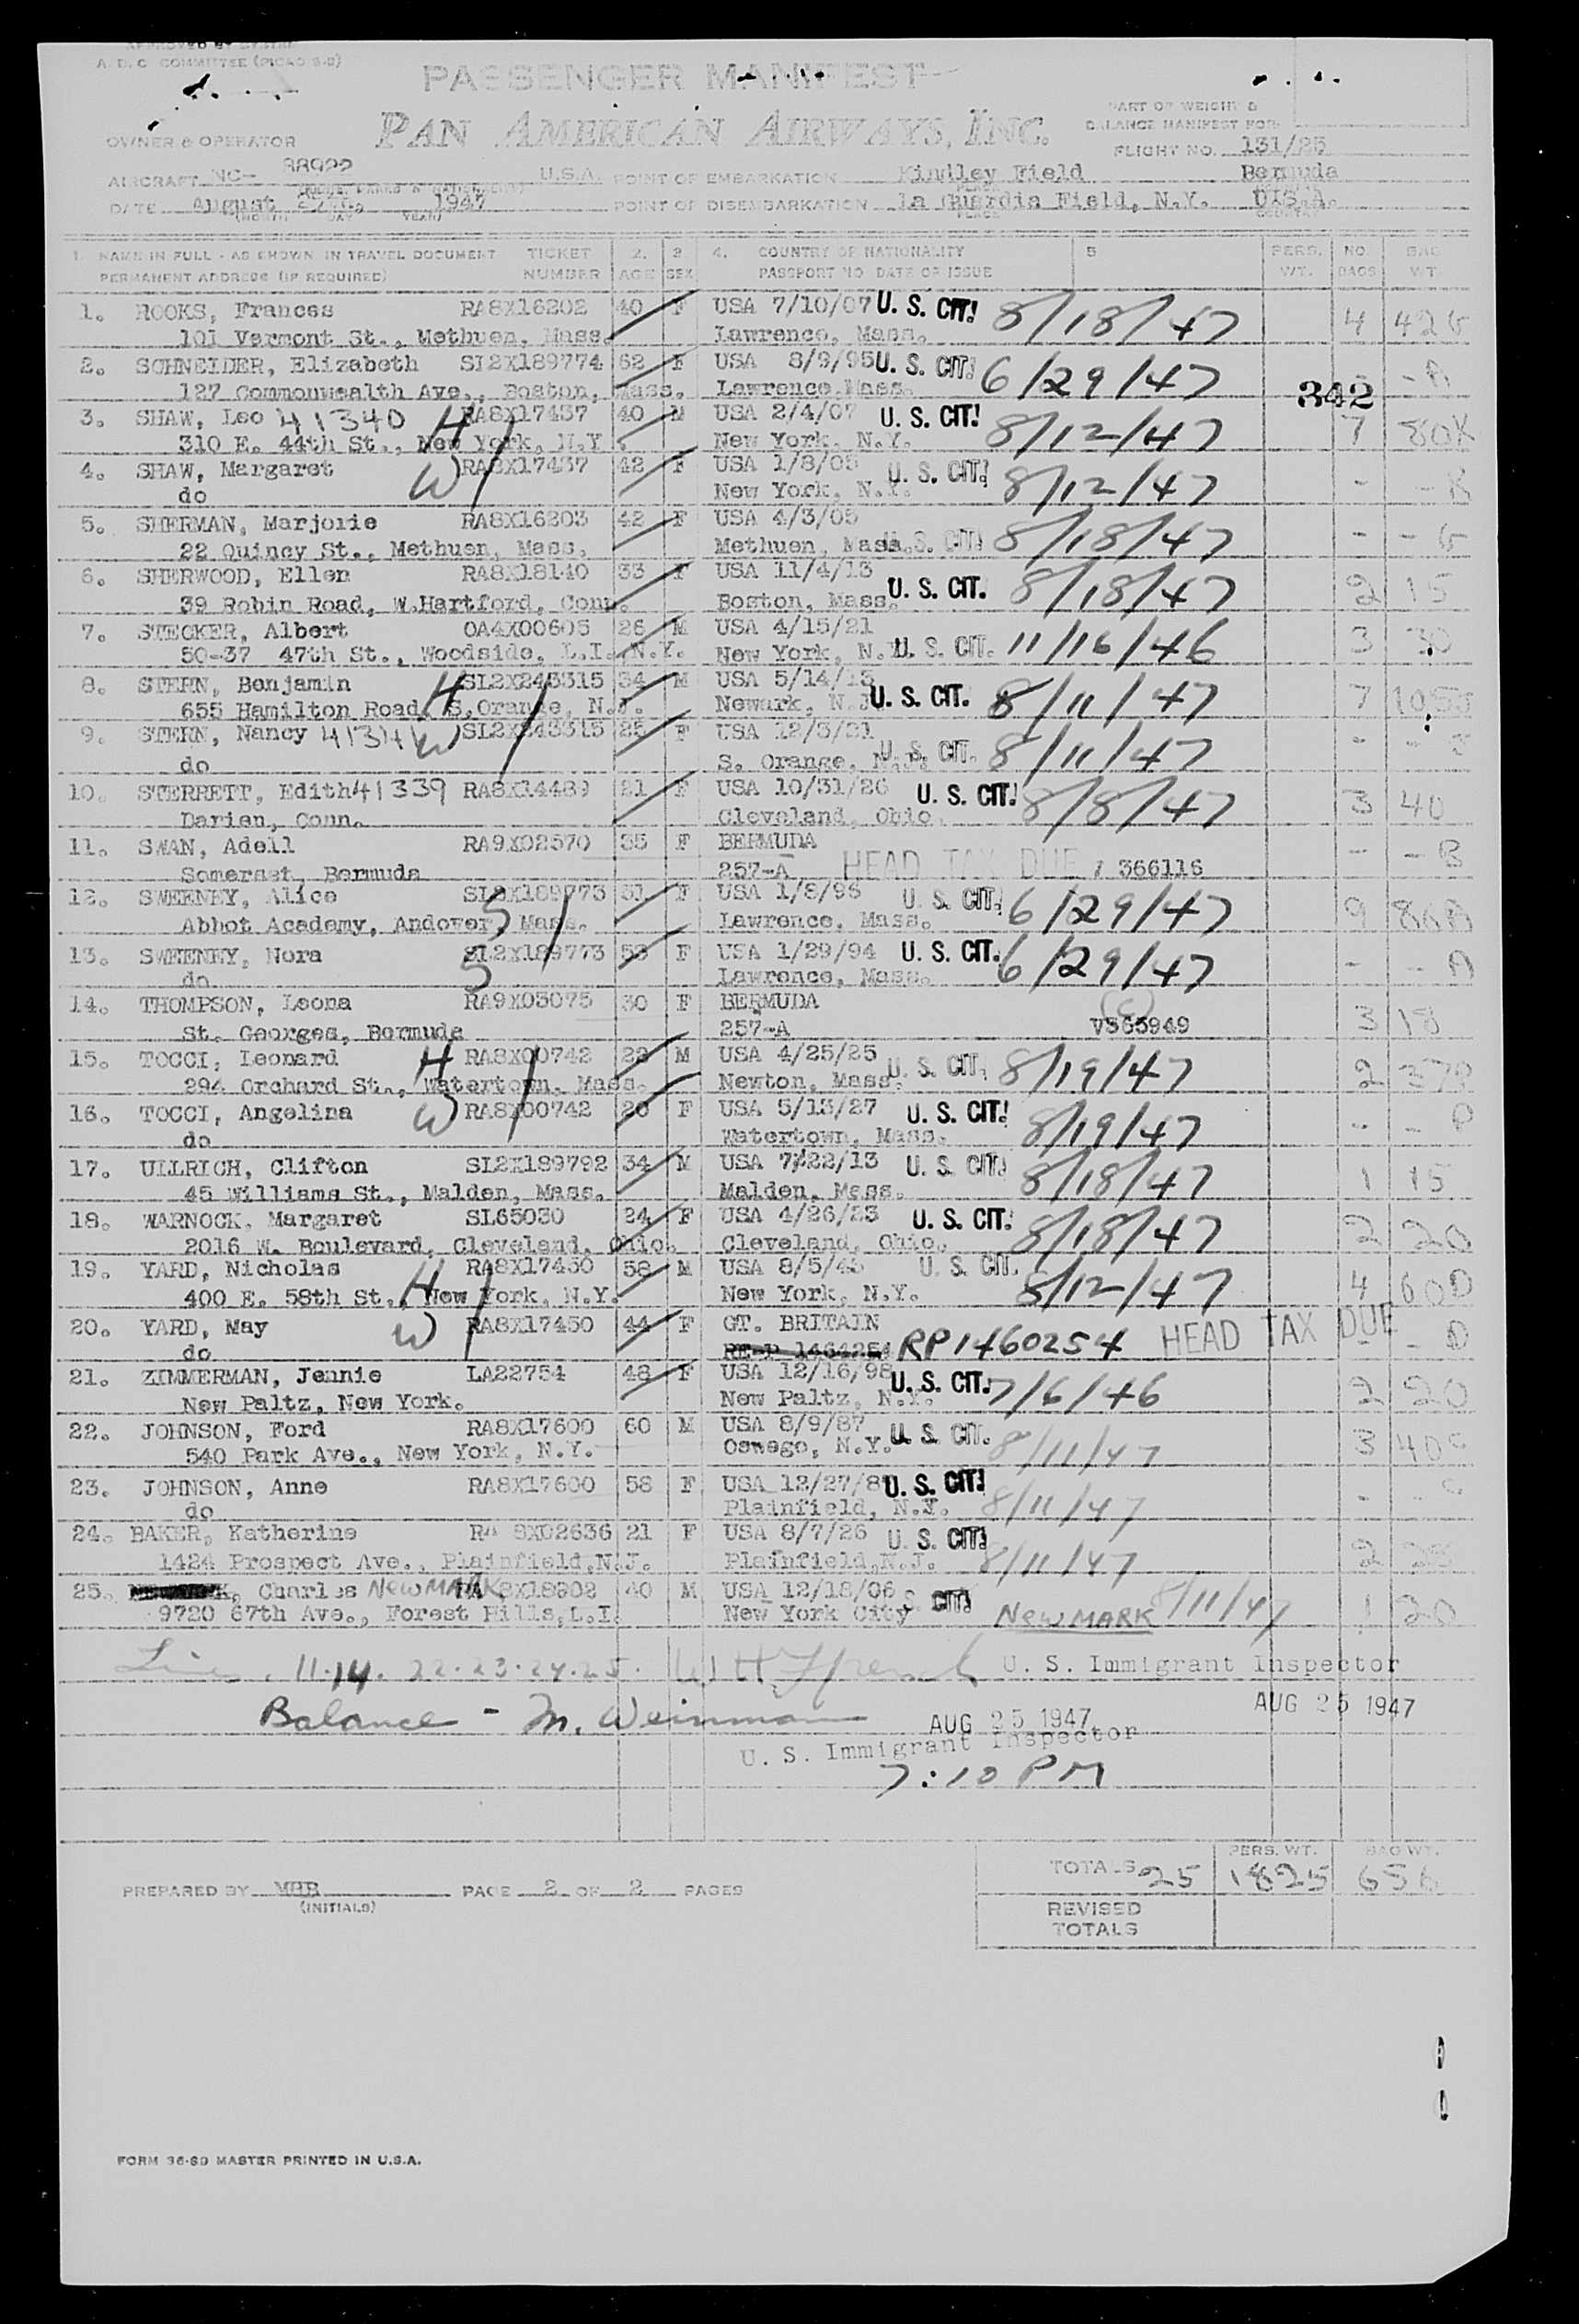 A.D.C COMMITTEE (PICAO S-D)
PASSENGER MANIFEST
PAN AMERICAN AIRWAYS, INC.
PART OF WEIGHT &
BALANCE MANIFEST FOR
OWNER & OPERATOR
FLIGHT NO. 131/25
AIRCRAFT NC- 88922 U.S.A. POINT OF EMBARKATION Kindley Field Bermuda
DATE August 1947 POINT OF DISEMBARKATION La Guardia Field, N.Y. U.S.A.
(MONTH) DAY YEAR) PLACE COUNTRY
1. NAME IN FULL - AS SHOWN IN TRAVEL DOCUMENT TICKET 2. 3. 4. COUNTRY OF NATIONALITY 5 PERS. NO. BAG
PERMANENT ADDRESS (IF REQUIRED) NUMBER AGE SEX PASSPORT NO DATE OF ISSUE WT. BAGS WT.
1. ROOKS, Frances RA8X16202 40 F USA 7/10/07 U. S. CIT. 8/18/47 4 42G
101 Vermont St., Methuen, Mass. Lawrence, Mass.
2. SCHNEIDER, Elizabeth SL2X189774 62 F USA 8/9/95 U. S. CIT. 6/29/47 - - A
127 Commonwealth Ave., Boston, Mass. Lawrence, Mass.
342
3. SHAW, Leo 41340 H RA8X17437 40 M USA 2/4/07 U. S. CIT. 8/12/47 7 80K
310 E. 44th St., New York, N.Y. New York, N.Y.
4. SHAW, Margaret W RA8X17437 42 F USA 1/8/05 U. S. CIT. 8/12/47 - -
do New York, N.Y.
5. SHERMAN, Marjorie RA8X16203 42 F USA 4/3/05 8/18/47 - - G
22 Quincy St., Methuen, Mass. Methuen, Mass. U. S. CIT.
6. SHERWOOD, Ellen RA8X18140 33 F USA 11/4/13 U. S. CIT. 8/18/47 2 15
39 Robin Road, W.Hartford, Conn. Boston, Mass.
7. STECKER, Albert OA4X00605 26 M USA 4/15/21 11/16/46 3 30
50-37 47th St., Woodside, L.I., N.Y. New York, N.Y. U. S. CIT.
8. STERN, Benjamin H SL2X243315 34 M USA 5/14/13 U. S. CIT. 8/11/47 7 105
655 Hamilton Road, S.Orange, N.J. Newark, N.J.
9. STERN, Nancy W SL2X243315 25 F USA 12/3/21 U. S. CIT. 8/11/47 - -
do S. Orange, N.J.
10. STERRETT, Edith 41339 RA8X14489 21 F USA 10/31/26 U. S. CIT. 8/8/47 3 40
Darien, Conn. Cleveland, Ohio.
11. SWAN, Adell RA9X02570 35 F BERMUDA - - B
Somerset, Bermuda 257-A HEAD TAX DUE 366116
12. SWEENEY, Alice SL2X189773 51 F USA 1/8/96 U. S. CIT. 6/29/47 9 86A
Abbot Academy, Andover, Mass. S Lawrence, Mass.
13. SWEENEY, Nora SL2X189773 53 F USA 1/29/94 U. S. CIT. 6/29/47 - - A
do S Lawrence, Mass.
14. THOMPSON, Leona RA9X03075 30 F BERMUDA (C) 3 18
St. Georges, Bermuda 257-A V365949
15. TOCCI, Leonard H RA8X00742 22 M USA 4/25/25 U. S. CIT. 8/19/47 2 37P
294 Orchard St., Watertown, Mass. Newton, Mass.
16. TOCCI, Angelina W RA8X00742 20 F USA 5/13/27 U. S. CIT. 8/19/47 - - P
do Watertown, Mass.
17. ULLRICH, Clifton SL2X189792 34 M USA 7/22/13 U. S. CIT. 8/18/47 1 15
45 Williams St., Malden, Mass. Malden, Mass.
18. WARNOCK, Margaret SL65030 24 F USA 4/26/23 U. S. CIT. 8/18/47 2 20
2016 W. Boulevard, Cleveland, Ohio. Cleveland, Ohio.
19. YARD, Nicholas H RA8X17450 58 M USA U. S. CIT. 8/12/47 4 60D
400 E. 58th St., New York, N.Y. New York, N.Y.
20. YARD, May W RA8X17450 44 F GT. BRITAIN HEAD TAX DUE - - D
do RP1460254
21. ZIMMERMAN, Jennie LA22754 48 F USA 12/16/98 U. S. CIT. 7/6/46 2 20
New Paltz, New York. New Paltz, N.Y.
22. JOHNSON, Ford RA8X17600 60 M USA 8/9/87 U. S. CIT. 8/11/47 3 40C
540 Park Ave., New York, N.Y. Oswego, N.Y.
23. JOHNSON, Anne RA8X17600 58 F USA 12/27/8 U. S. CIT. 8/11/47 - - C
do Plainfield, N.J.
24. BAKER, Katherine RA 8X02636 21 F USA 8/7/26 U. S. CIT. 8/11/47 2 25
1424 Prospect Ave., Plainfield, N.J. Plainfield, N.J.
25. Charles NEWMARK RA8X18902 40 M USA 12/18/06 CIT. 8/11/47 1 20
9720 67th Ave., Forest Hills, L.I. New York City NEWMARK
Lines. 11.14. 22.23.24.25. U. S. Immigrant Inspector
Balance - M. Weinman AUG 25 1947 AUG 25 1947
U. S. Immigrant Inspector
7:10 PM
TOTALS 25 PERS. WT. 1825 BAG WT. 656
PREPARED BY MHR PAGE 2 OF 2 PAGES
(INITIALS)
REVISED
TOTALS
FORM 36-SD MASTER PRINTED IN U.S.A.